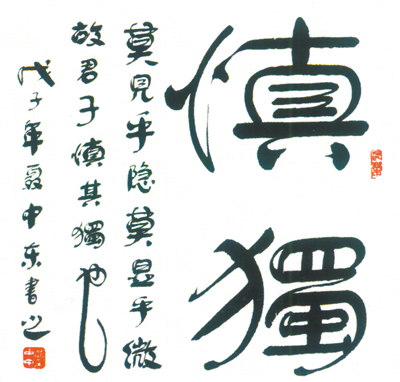 慎獨
莫見乎隐莫显乎微
故君子慎其獨也
戊子年夏中东書